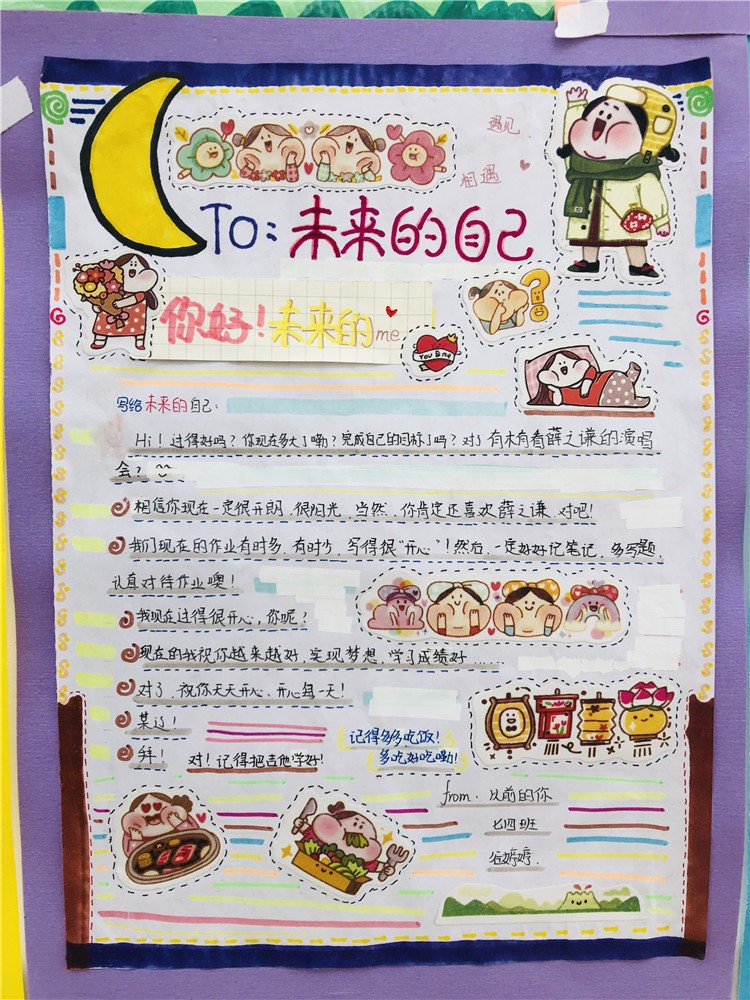 遇见
相遇
TO:未来的自己
你好!未来的me
You & me
写给未来的自己:
Hi!过得好吗?你现在多大了嘞?完成自己的目标了吗?对了有木有看薛之谦的演唱
会?
相信你现在一定很开朗,很阳光,当然,你肯定还喜欢薛之谦,对吧!
我们现在的作业有时多,有时少,写得很"开心"!然后,一定好好记笔记,多写题,
认真对待作业噢!
我现在过得很开心,你呢?
现在的我祝你越来越好,实现梦想,学习成绩好......
对了,祝你天天开心,开心每一天!
某迈!
拜!
对!记得把吉他学好!
记得多吃饭!
多吃好吃嘞!
from:以前的你
七四班
婷婷.